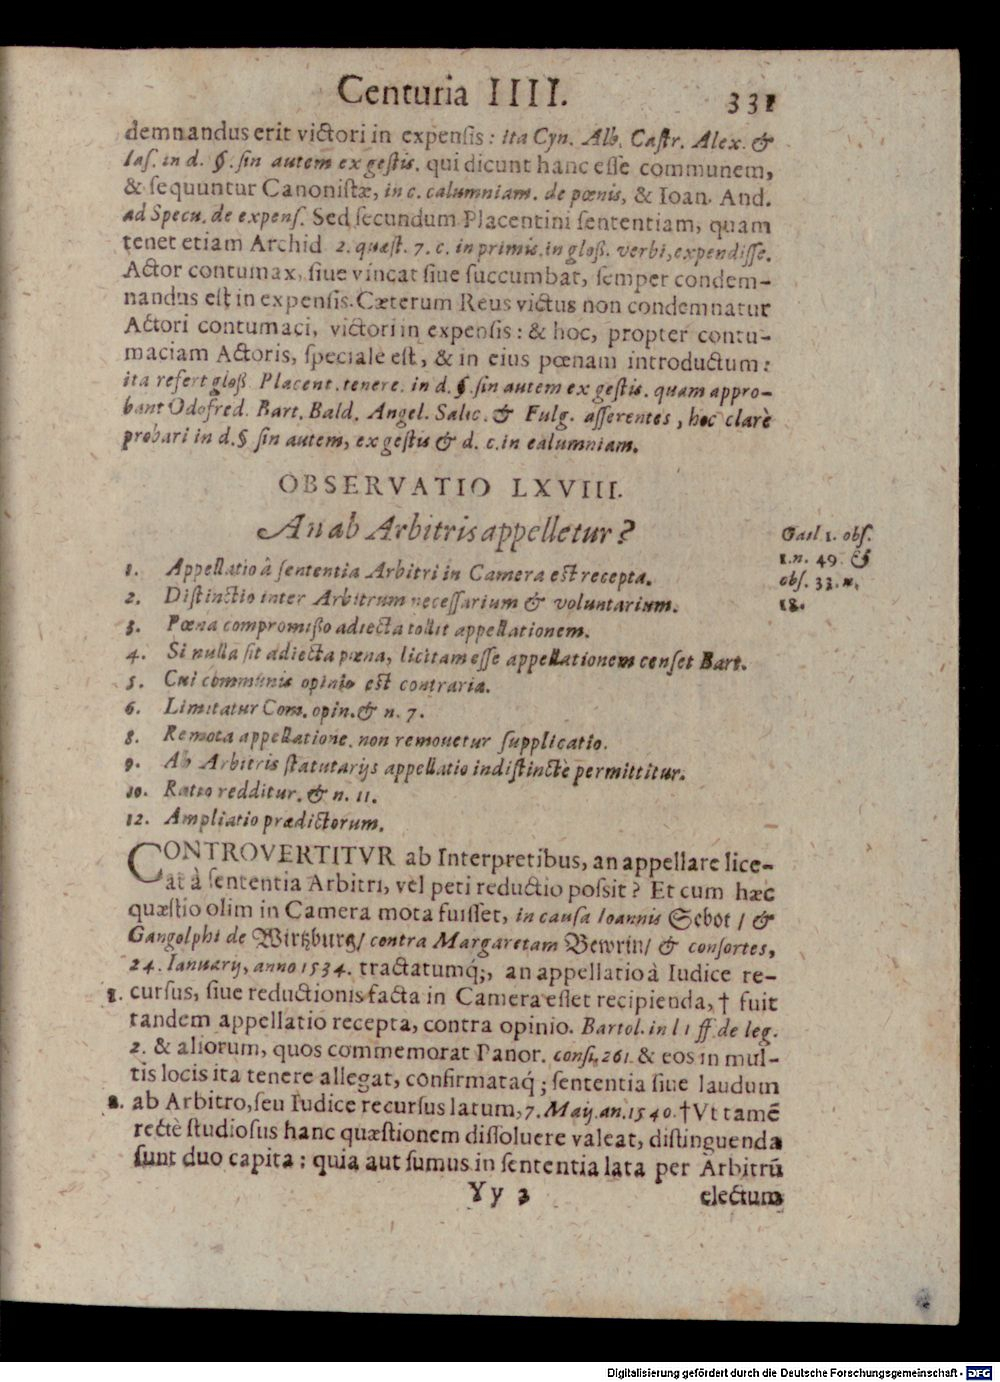 Centuria IIII. 331
demnandus erit victori in expensis: ita Cyn. Alb. Castr. Alex. &
Ias. in d. §. sin autem ex gestis. qui dicunt hanc esse communem,
& sequuntur Canonistæ, in c. calumniam. de pœnis, & Ioan. And.
ad Specu. de expens. Sed secundum Placentini sententiam, quam
tenet etiam Archid 2. quæst. 7. c. in primis. in gloß. verbi, expendisse.
Actor contumax, siue vincat siue succumbat, semper condem-
nandus est in expensis. Cæterum Reus victus non condemnatur
Actori contumaci, victori in expensis: & hoc, propter contu-
maciam Actoris, speciale est, & in eius pœnam introductum:
ita refert gloß. Placent. tenere. in d. §. sin autem ex gestis. quam appro-
bant Odofred. Bart. Bald. Angel. Salic. & Fulg. asserentes, hoc clarè
probari in d. § sin autem, ex gestis & d. c. in ealumniam.
OBSERVATIO LXVIII.
An ab Arbitris appelletur?
Gail 1. obs.
1. n. 49. &
obs. 33. n.
18.
1. Appellatio â sententia Arbitri in Camera est recepta.
2. Distinctio inter Arbitrum necessarium & voluntarium.
3. Pœna compromißo adiecta tollit appellationem.
4. Si nulla sit adiecta pœna, licitam esse appellationem censet Bart.
5. Cui communis opinio est contraria.
6. Limitatur Com. opin. & n. 7.
8. Remota appellatione, non remouetur supplicatio.
9. Ab Arbitris statutarijs appellatio indistinctè permittitur.
10. Ratio redditur. & n. 11.
12. Ampliatio prædictorum.
CONTROVERTITVR ab Interpretibus, an appellare lice-
at à sententia Arbitri, vel peti reductio possit? Et cum hæc
quæstio olim in Camera mota fuisset, in causa Ioannis Sebot / &
Gangolphi de Wirtzburg / contra Margaretam Bewrin / & consortes,
24. Ianuarij, anno 1534. tractatumq́;, an appellatio à Iudice re-
1. cursus, siue reductionis facta in Camera esset recipienda, † fuit
tandem appellatio recepta, contra opinio. Bartol. in l 1 ff de leg.
2. & aliorum, quos commemorat Panor. consi. 261. & eos in mul-
tis locis ita tenere allegat, confirmataq́; sententia siue laudum
2. ab Arbitro, seu Iudice recursus latum, 7. Maij. an. 1540. † Vt tamẽ
rectè studiosus hanc quæstionem dissoluere valeat, distinguenda
sunt duo capita: quia aut sumus in sententia lata per Arbitrũ
Yy 3 electum
Digitalisierung gefördert durch die Deutsche Forschungsgemeinschaft - DFG